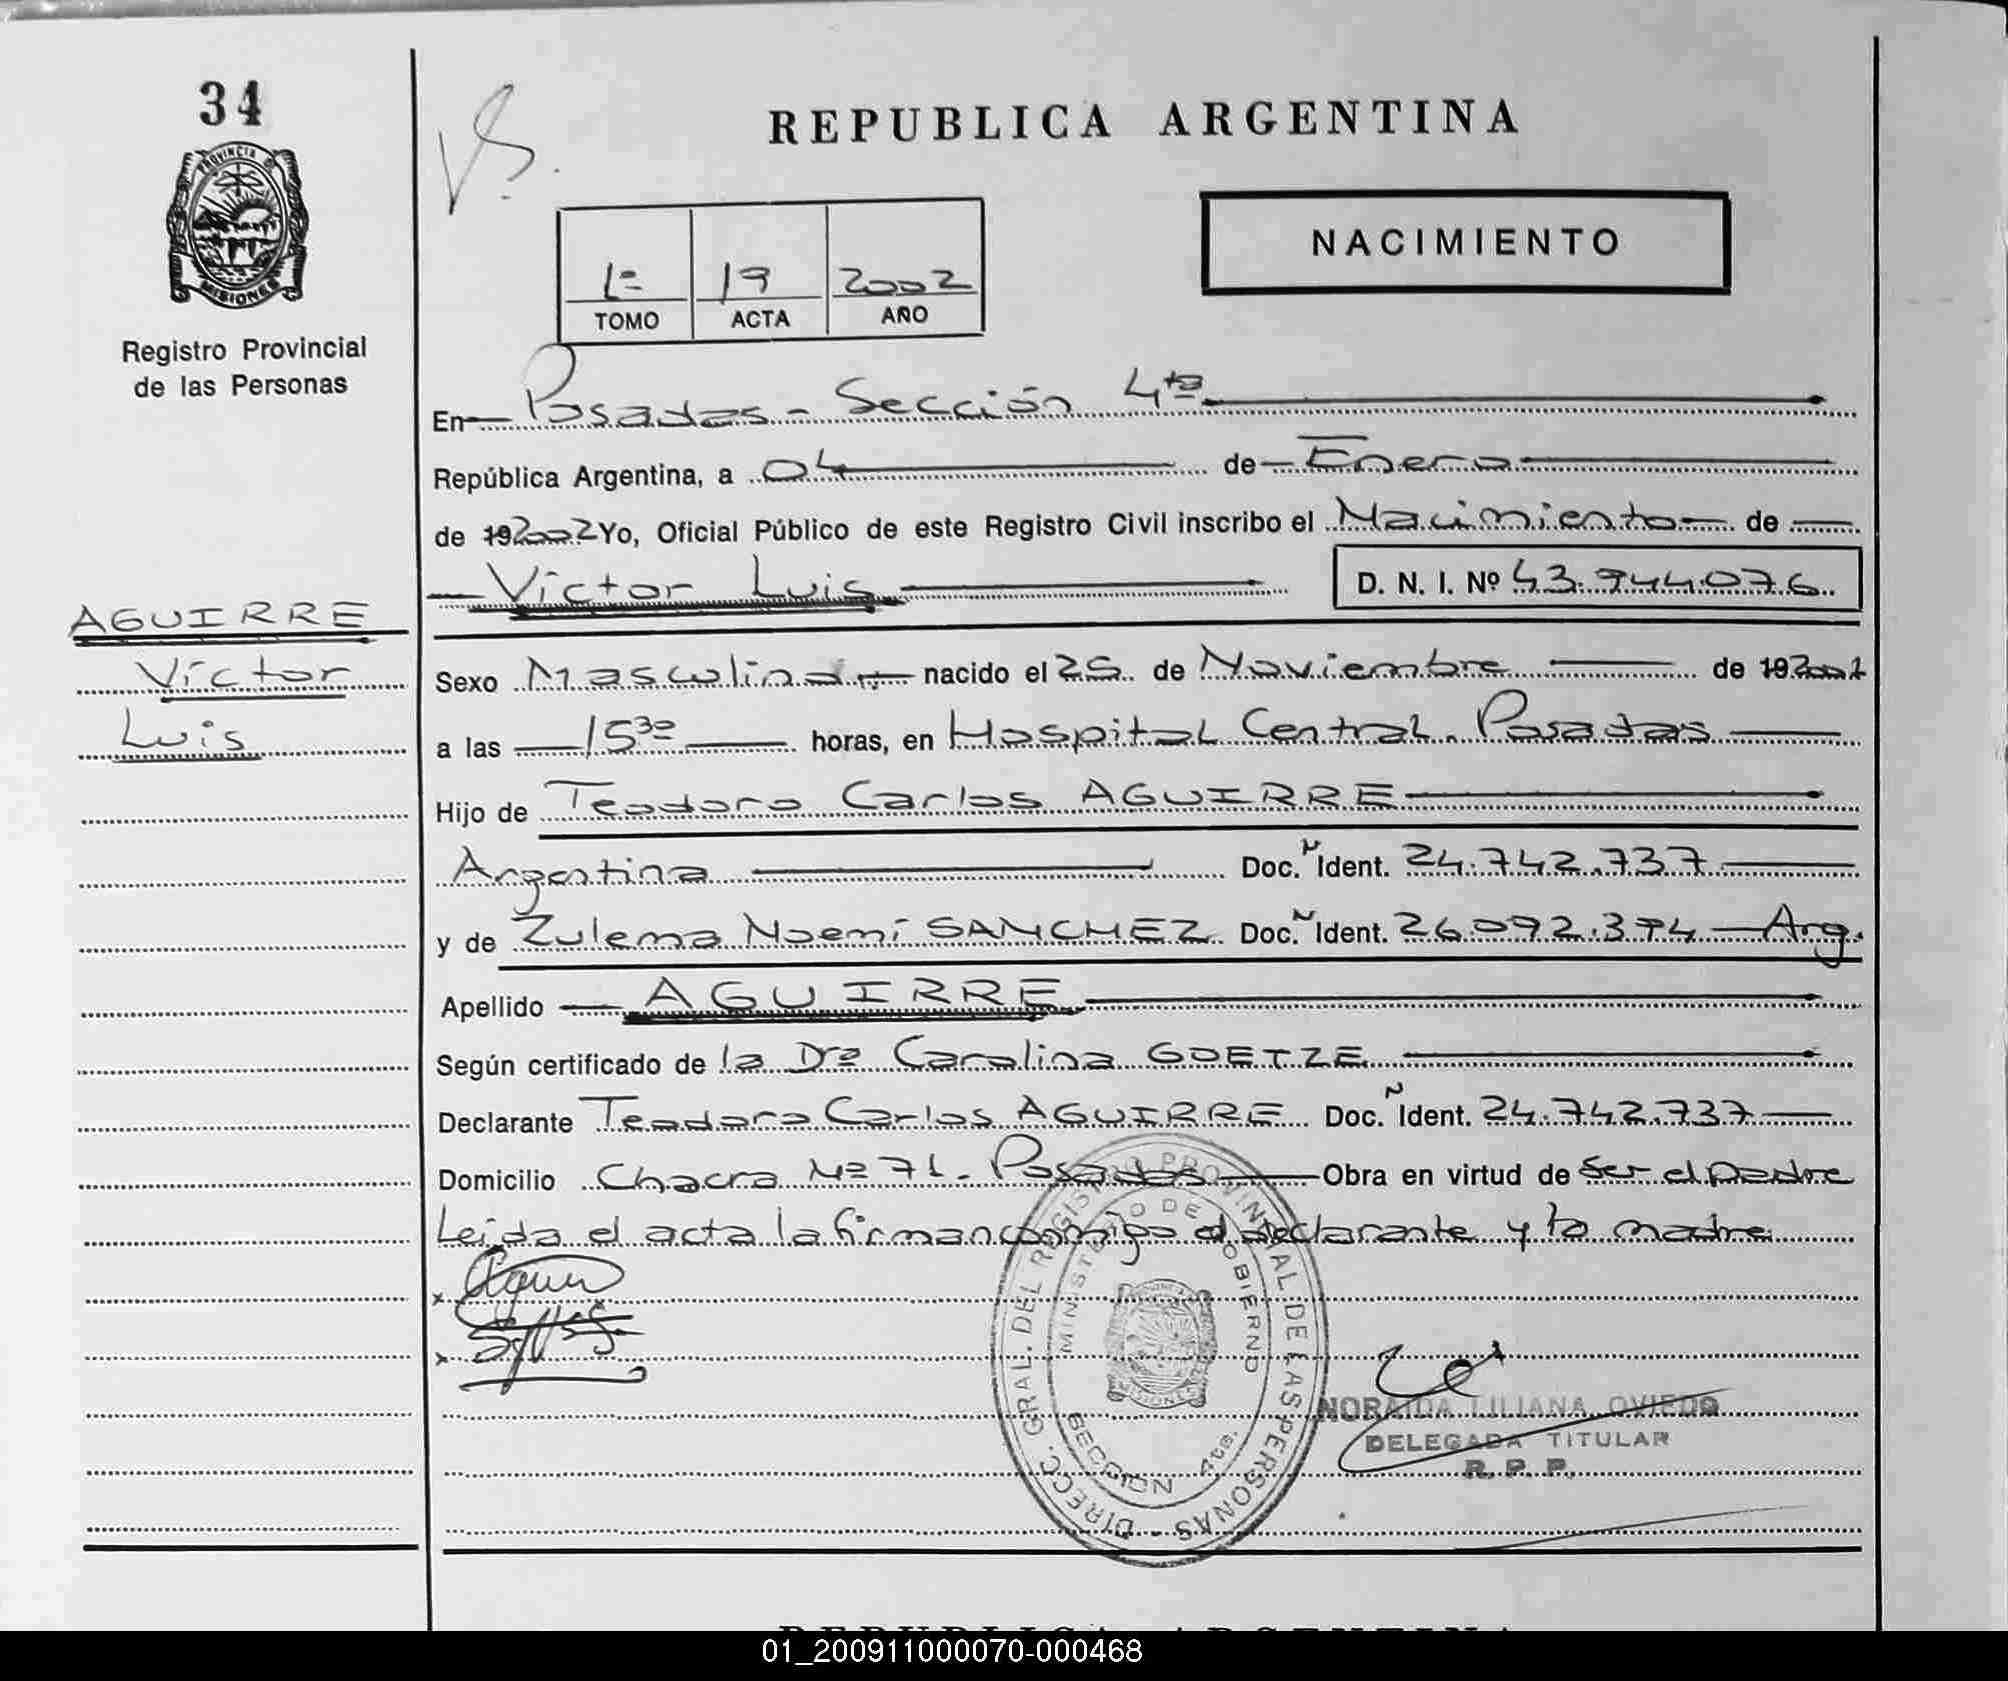 34
PROVINCIA DE
MISIONES
Registro Provincial
de las Personas
REPUBLICA ARGENTINA
NACIMIENTO
1º 19 2002
TOMO ACTA AÑO
En Posadas - Sección 4ta
República Argentina, a 04 de Enero
de 192002 Yo, Oficial Público de este Registro Civil inscribo el Nacimiento de
Víctor Luis D. N. I. Nº 43.944.076
AGUIRRE
Víctor
Luis
Sexo Masculino nacido el 25 de Noviembre de 192001
a las 15 30 horas, en Hospital Central. Posadas
Hijo de Teodoro Carlos AGUIRRE
Argentina Doc. N Ident. 24.742.737
y de Zulema Noemí SANCHEZ Doc. N Ident. 26.092.374 Arg.
Apellido AGUIRRE
Según certificado de la Dra Carolina GOETZE
Declarante Teodoro Carlos AGUIRRE Doc. N Ident. 24.742.737
Domicilio Chacra Nº 71. Posadas Obra en virtud de ser el padre
Leída el acta la firman conmigo el declarante y la madre
x
x
DIRECC. GRAL. DEL REGISTRO PROVINCIAL DE LAS PERSONAS -
MINISTERIO DE GOBIERNO
SECCION 4ta.
NORAIDA LILIANA OVIEDO
DELEGADA TITULAR
R. P. P.
REPUBLICA ARGENTINA
01_200911000070-000468